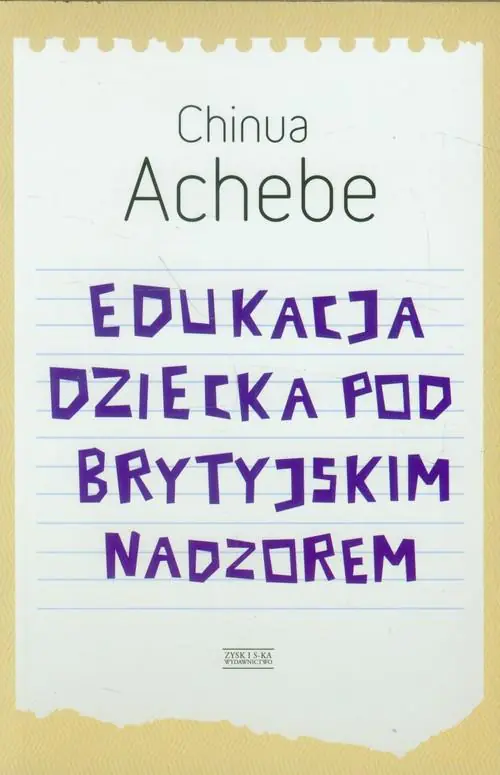 Chinua
Achebe
EDUKACJA
DZIECKA POD
BRYTYJSKIM
NADZOREM
ZYSK I S-KA
WYDAWNICTWO